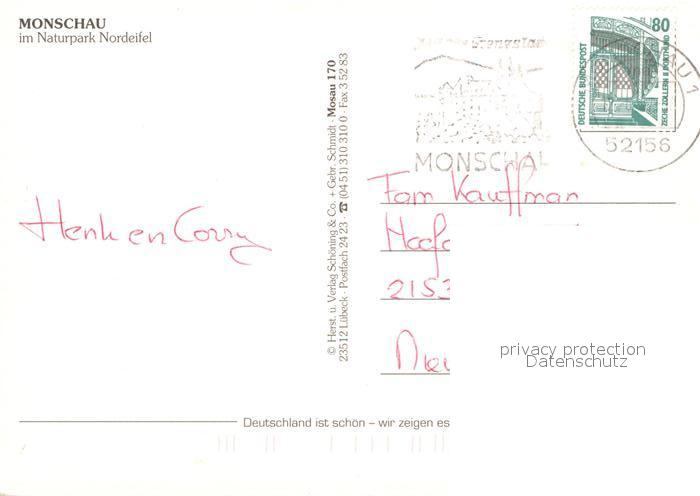 MONSCHAU
im Naturpark Nordeifel
80
DEUTSCHE BUNDESPOST
ZECHE ZOLLERN II DORTMUND
MONSCHAU
52156
© Herst. u. Verlag Schöning & Co. + Gebr. Schmidt · Mosau 170
23512 Lübeck · Postfach 24 23 · ☎ (04 51) 310 310 0 · Fax 3 52 83
Henk en Corry
Fam Kauffman
2153
privacy protection
Datenschutz
Deutschland ist schön – wir zeigen es